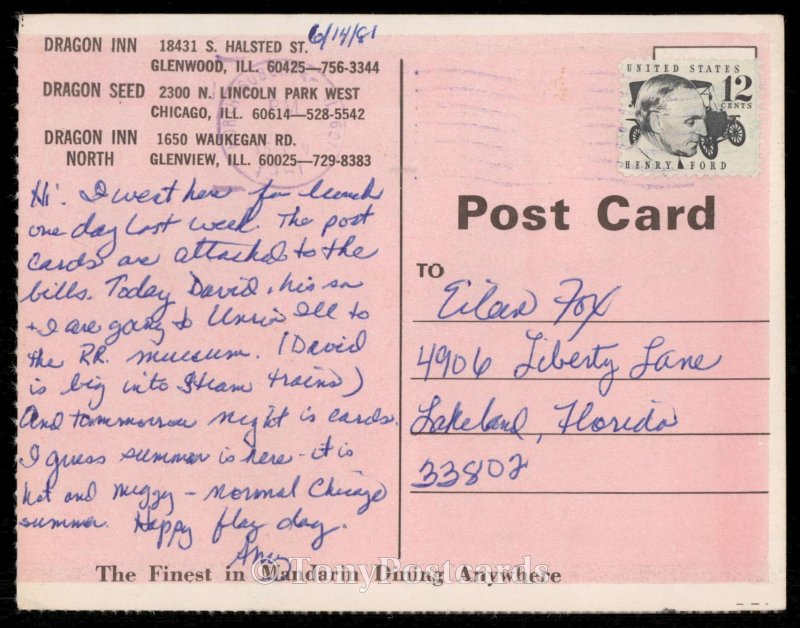 6/14/81
DRAGON INN 18431 S. HALSTED ST.
GLENWOOD, ILL. 60425—756-3344
DRAGON SEED 2300 N. LINCOLN PARK WEST
CHICAGO, ILL. 60614—528-5542
DRAGON INN NORTH 1650 WAUKEGAN RD.
GLENVIEW, ILL. 60025—729-8383
Hi. I went here for lunch
one day last week. The post
cards are attached to the
bills. Today David, his son
+ I are going to Union Ill to
the RR. museum. (David
is big into Steam trains)
And tommorrow night is cards.
I guess summer is here - it is
hot and muggy - normal Chicago
summer. Happy flag day.
Amy
The Finest in Mandarin Dining Anywhere
UNITED STATES
12 CENTS
HENRY FORD
Post Card
TO
Eileen Fox
4906 Liberty Lane
Lakeland, Florida
33802
©TonyPostcards